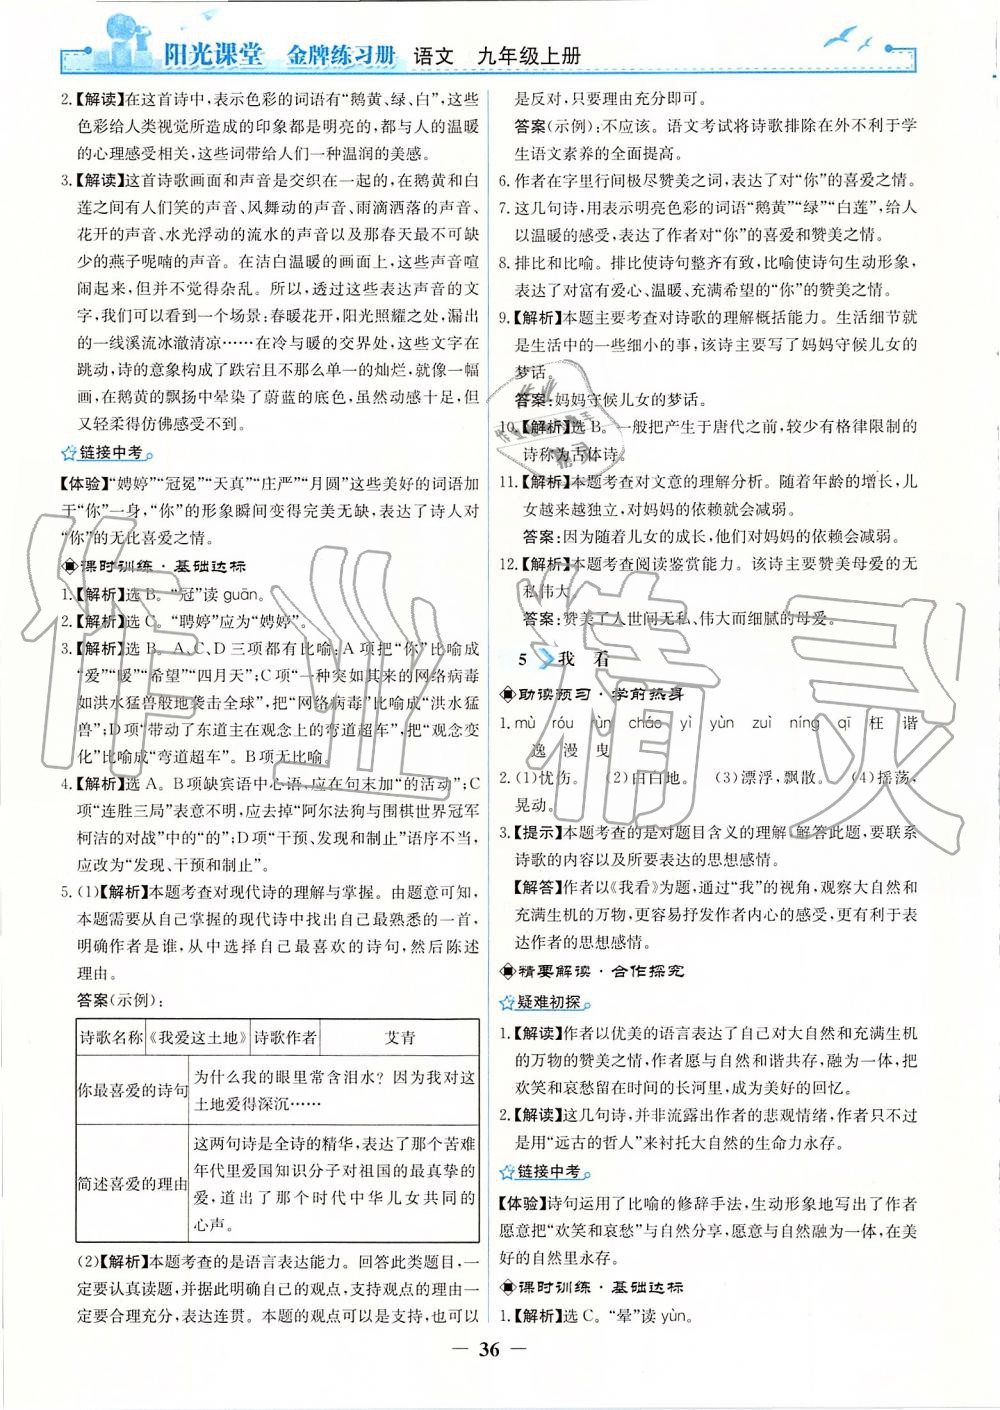 阳光课堂 金牌练习册 语文 九年级上册
2.【解读】在这首诗中,表示色彩的词语有“鹅黄、绿、白”,这些
色彩给人类视觉所造成的印象都是明亮的,都与人的温暖
的心理感受相关,这些词带给人们一种温润的美感。
3.【解读】这首诗歌画面和声音是交织在一起的,在鹅黄和白
莲之间有人们笑的声音、风舞动的声音、雨滴洒落的声音、
花开的声音、水光浮动的流水的声音以及那春天最不可缺
少的燕子呢喃的声音。在洁白温暖的画面上,这些声音喧
闹起来,但并不觉得杂乱。所以,透过这些表达声音的文
字,我们可以看到一个场景:春暖花开,阳光照耀之处,漏出
的一线溪流冰澈清凉……在冷与暖的交界处,这些文字在
跳动,诗的意象构成了跌宕且不那么单一的灿烂,就像一幅
画,在鹅黄的飘扬中晕染了蔚蓝的底色,虽然动感十足,但
又轻柔得仿佛感受不到。
链接中考
【体验】“娉婷”“冠冕”“天真”“庄严”“月圆”这些美好的词语加
于“你”一身,“你”的形象瞬间变得完美无缺,表达了诗人对
“你”的无比喜爱之情。
课时训练·基础达标
1.【解析】选B。“冠”读guān。
2.【解析】选C。“聘婷”应为“娉婷”。
3.【解析】选B。A、C、D三项都有比喻:A项把“你”比喻成
“爱”“暖”“希望”“四月天”;C项“一种突如其来的网络病毒
如洪水猛兽般地袭击全球”,把“网络病毒”比喻成“洪水猛
兽”;D项“带动了东道主在观念上的弯道超车”,把“观念变
化”比喻成“弯道超车”。B项无比喻。
4.【解析】选A。B项缺宾语中心语,应在句末加“的活动”;C
项“连胜三局”表意不明,应去掉“阿尔法狗与围棋世界冠军
柯洁的对战”中的“的”;D项“干预、发现和制止”语序不当,
应改为“发现、干预和制止”。
5.(1)【解析】本题考查对现代诗的理解与掌握。由题意可知,
本题需要从自己掌握的现代诗中找出自己最熟悉的一首,
明确作者是谁,从中选择自己最喜欢的诗句,然后陈述
理由。
答案(示例):
诗歌名称 《我爱这土地》 诗歌作者 艾青
你最喜爱的诗句 为什么我的眼里常含泪水?因为我对这
土地爱得深沉……
简述喜爱的理由 这两句诗是全诗的精华,表达了那个苦难
年代里爱国知识分子对祖国的最真挚的
爱,道出了那个时代中华儿女共同的
心声。
(2)【解析】本题考查的是语言表达能力。回答此类题目,一
定要认真读题,并据此明确自己的观点,支持观点的理由一
定要合理充分,表达连贯。本题的观点可以是支持,也可以
是反对,只要理由充分即可。
答案(示例):不应该。语文考试将诗歌排除在外不利于学
生语文素养的全面提高。
6.作者在字里行间极尽赞美之词,表达了对“你”的喜爱之情。
7.这几句诗,用表示明亮色彩的词语“鹅黄”“绿”“白莲”,给人
以温暖的感受,表达了作者对“你”的喜爱和赞美之情。
8.排比和比喻。排比使诗句整齐有致,比喻使诗句生动形象,
表达了对富有爱心、温暖、充满希望的“你”的赞美之情。
9.【解析】本题主要考查对诗歌的理解概括能力。生活细节就
是生活中的一些细小的事,该诗主要写了妈妈守候儿女的
梦话。
答案:妈妈守候儿女的梦话。
10.【解析】选B。一般把产生于唐代之前,较少有格律限制的
诗称为古体诗。
11.【解析】本题考查对文意的理解分析。随着年龄的增长,儿
女越来越独立,对妈妈的依赖就会减弱。
答案:因为随着儿女的成长,他们对妈妈的依赖会减弱。
12.【解析】本题考查阅读鉴赏能力。该诗主要赞美母爱的无
私伟大。
答案:赞美了人世间无私、伟大而细腻的母爱。
5 我 看
助读预习·学前热身
1.mù róu rùn cháo yì yùn zuì níng qī 枉 谐
逸 漫 曳
2.(1)忧伤。 (2)白白地。 (3)漂浮,飘散。 (4)摇荡,
晃动。
3.【提示】本题考查的是对题目含义的理解,解答此题,要联系
诗歌的内容以及所要表达的思想感情。
【解答】作者以《我看》为题,通过“我”的视角,观察大自然和
充满生机的万物,更容易抒发作者内心的感受,更有利于表
达作者的思想感情。
精要解读·合作探究
疑难初探
1.【解读】作者以优美的语言表达了自己对大自然和充满生机
的万物的赞美之情,作者愿与自然和谐共存,融为一体,把
欢笑和哀愁留在时间的长河里,成为美好的回忆。
2.【解读】这几句诗,并非流露出作者的悲观情绪,作者只不过
是用“远古的哲人”来衬托大自然的生命力永存。
链接中考
【体验】诗句运用了比喻的修辞手法,生动形象地写出了作者
愿意把“欢笑和哀愁”与自然分享,愿意与自然融为一体,在美
好的自然里永存。
课时训练·基础达标
1.【解析】选C。“晕”读yùn。
— 36 —
作业精灵